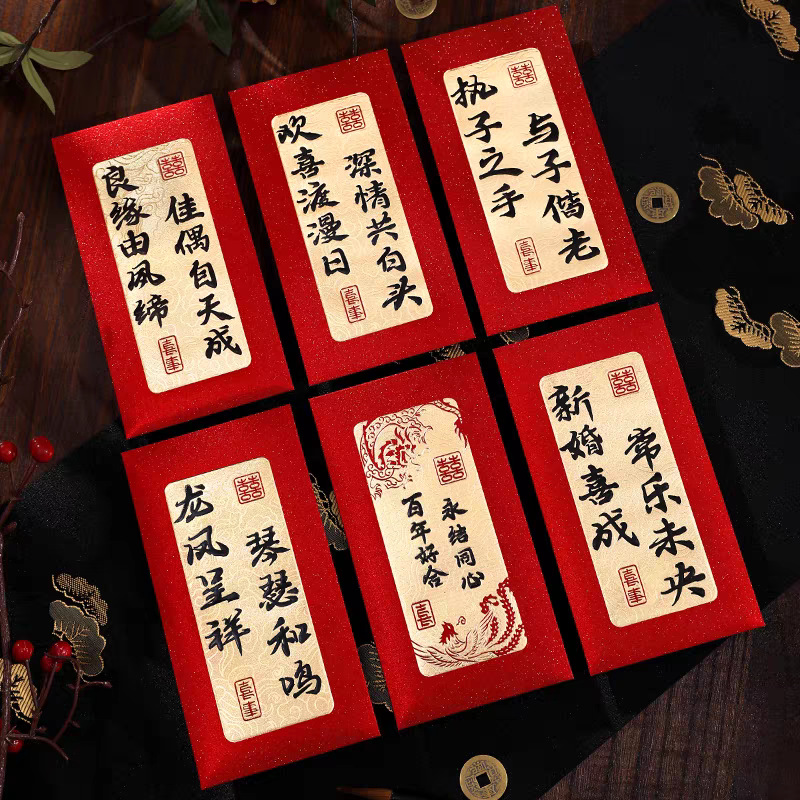 囍
良缘由夙缔
佳偶自天成
喜事
囍
欢喜渡漫日
深情共白头
喜事
囍
执子之手
与子偕老
喜事
囍
龙凤呈祥
琴瑟和鸣
喜事
囍
百年好合
永结同心
喜
囍
新婚喜成
常乐未央
喜事